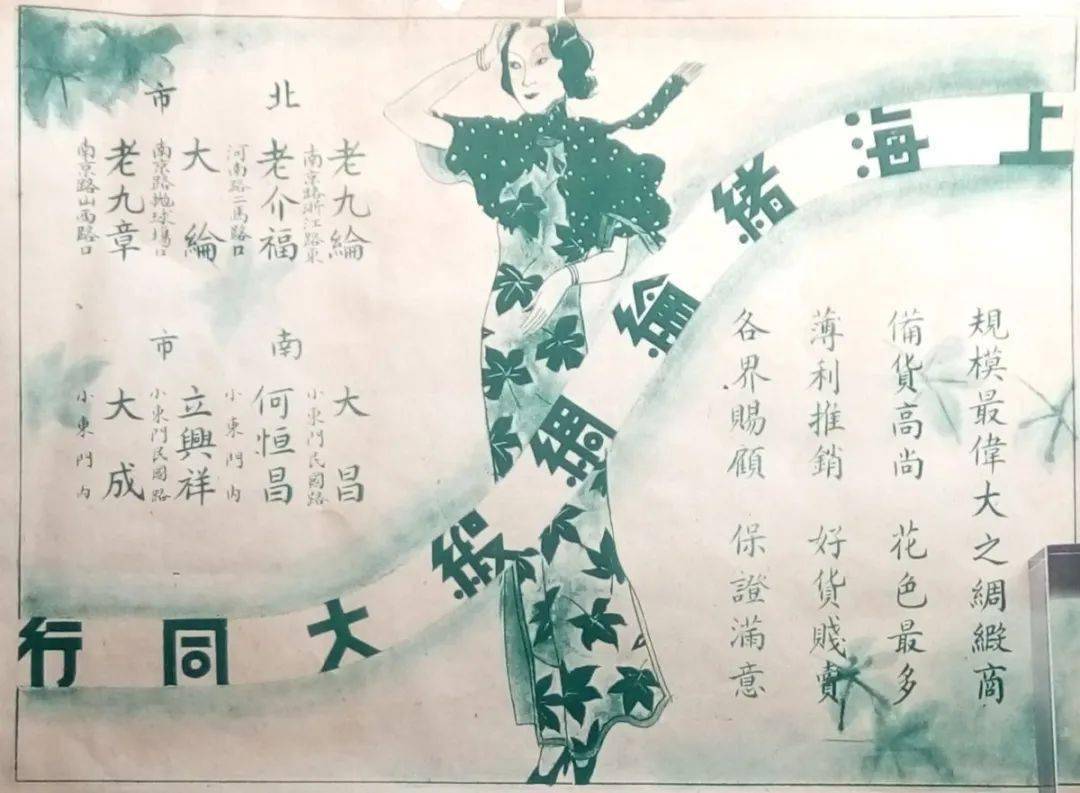 上海緒綸綢緞大同行
規模最偉大之綢緞商
備貨高尚 花色最多
薄利推銷 好貨賤賣
各界賜顧 保證滿意
北市
老九綸
南京路浙江路東
老介福
河南路二馬路口
大綸
南京路拋球場口
老九章
南京路山西路口
南市
大昌
小東門民國路
何恒昌
小東門內
立興祥
小東門民國路
大成
小東門內